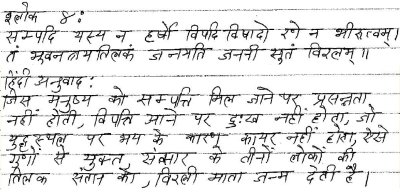 श्लोक ४:
सम्पदि यस्य न हर्षो विपदि विषादो रणे न भीरुत्वम्।
तं भुवनत्रयतिलकं जनयति जननी सुतं विरलम्॥
हिंदी अनुवाद:
जिस मनुष्य को सम्पत्ति मिल जाने पर प्रसन्नता
नहीं होती, विपत्ति आने पर दुःख नहीं होता, जो
युद्धस्थल पर भय के कारण कायर नहीं होता, ऐसे
गुणों से युक्त, संसार के तीनों लोकों की
तिलक संतान को, विरली माता जन्म देती है।